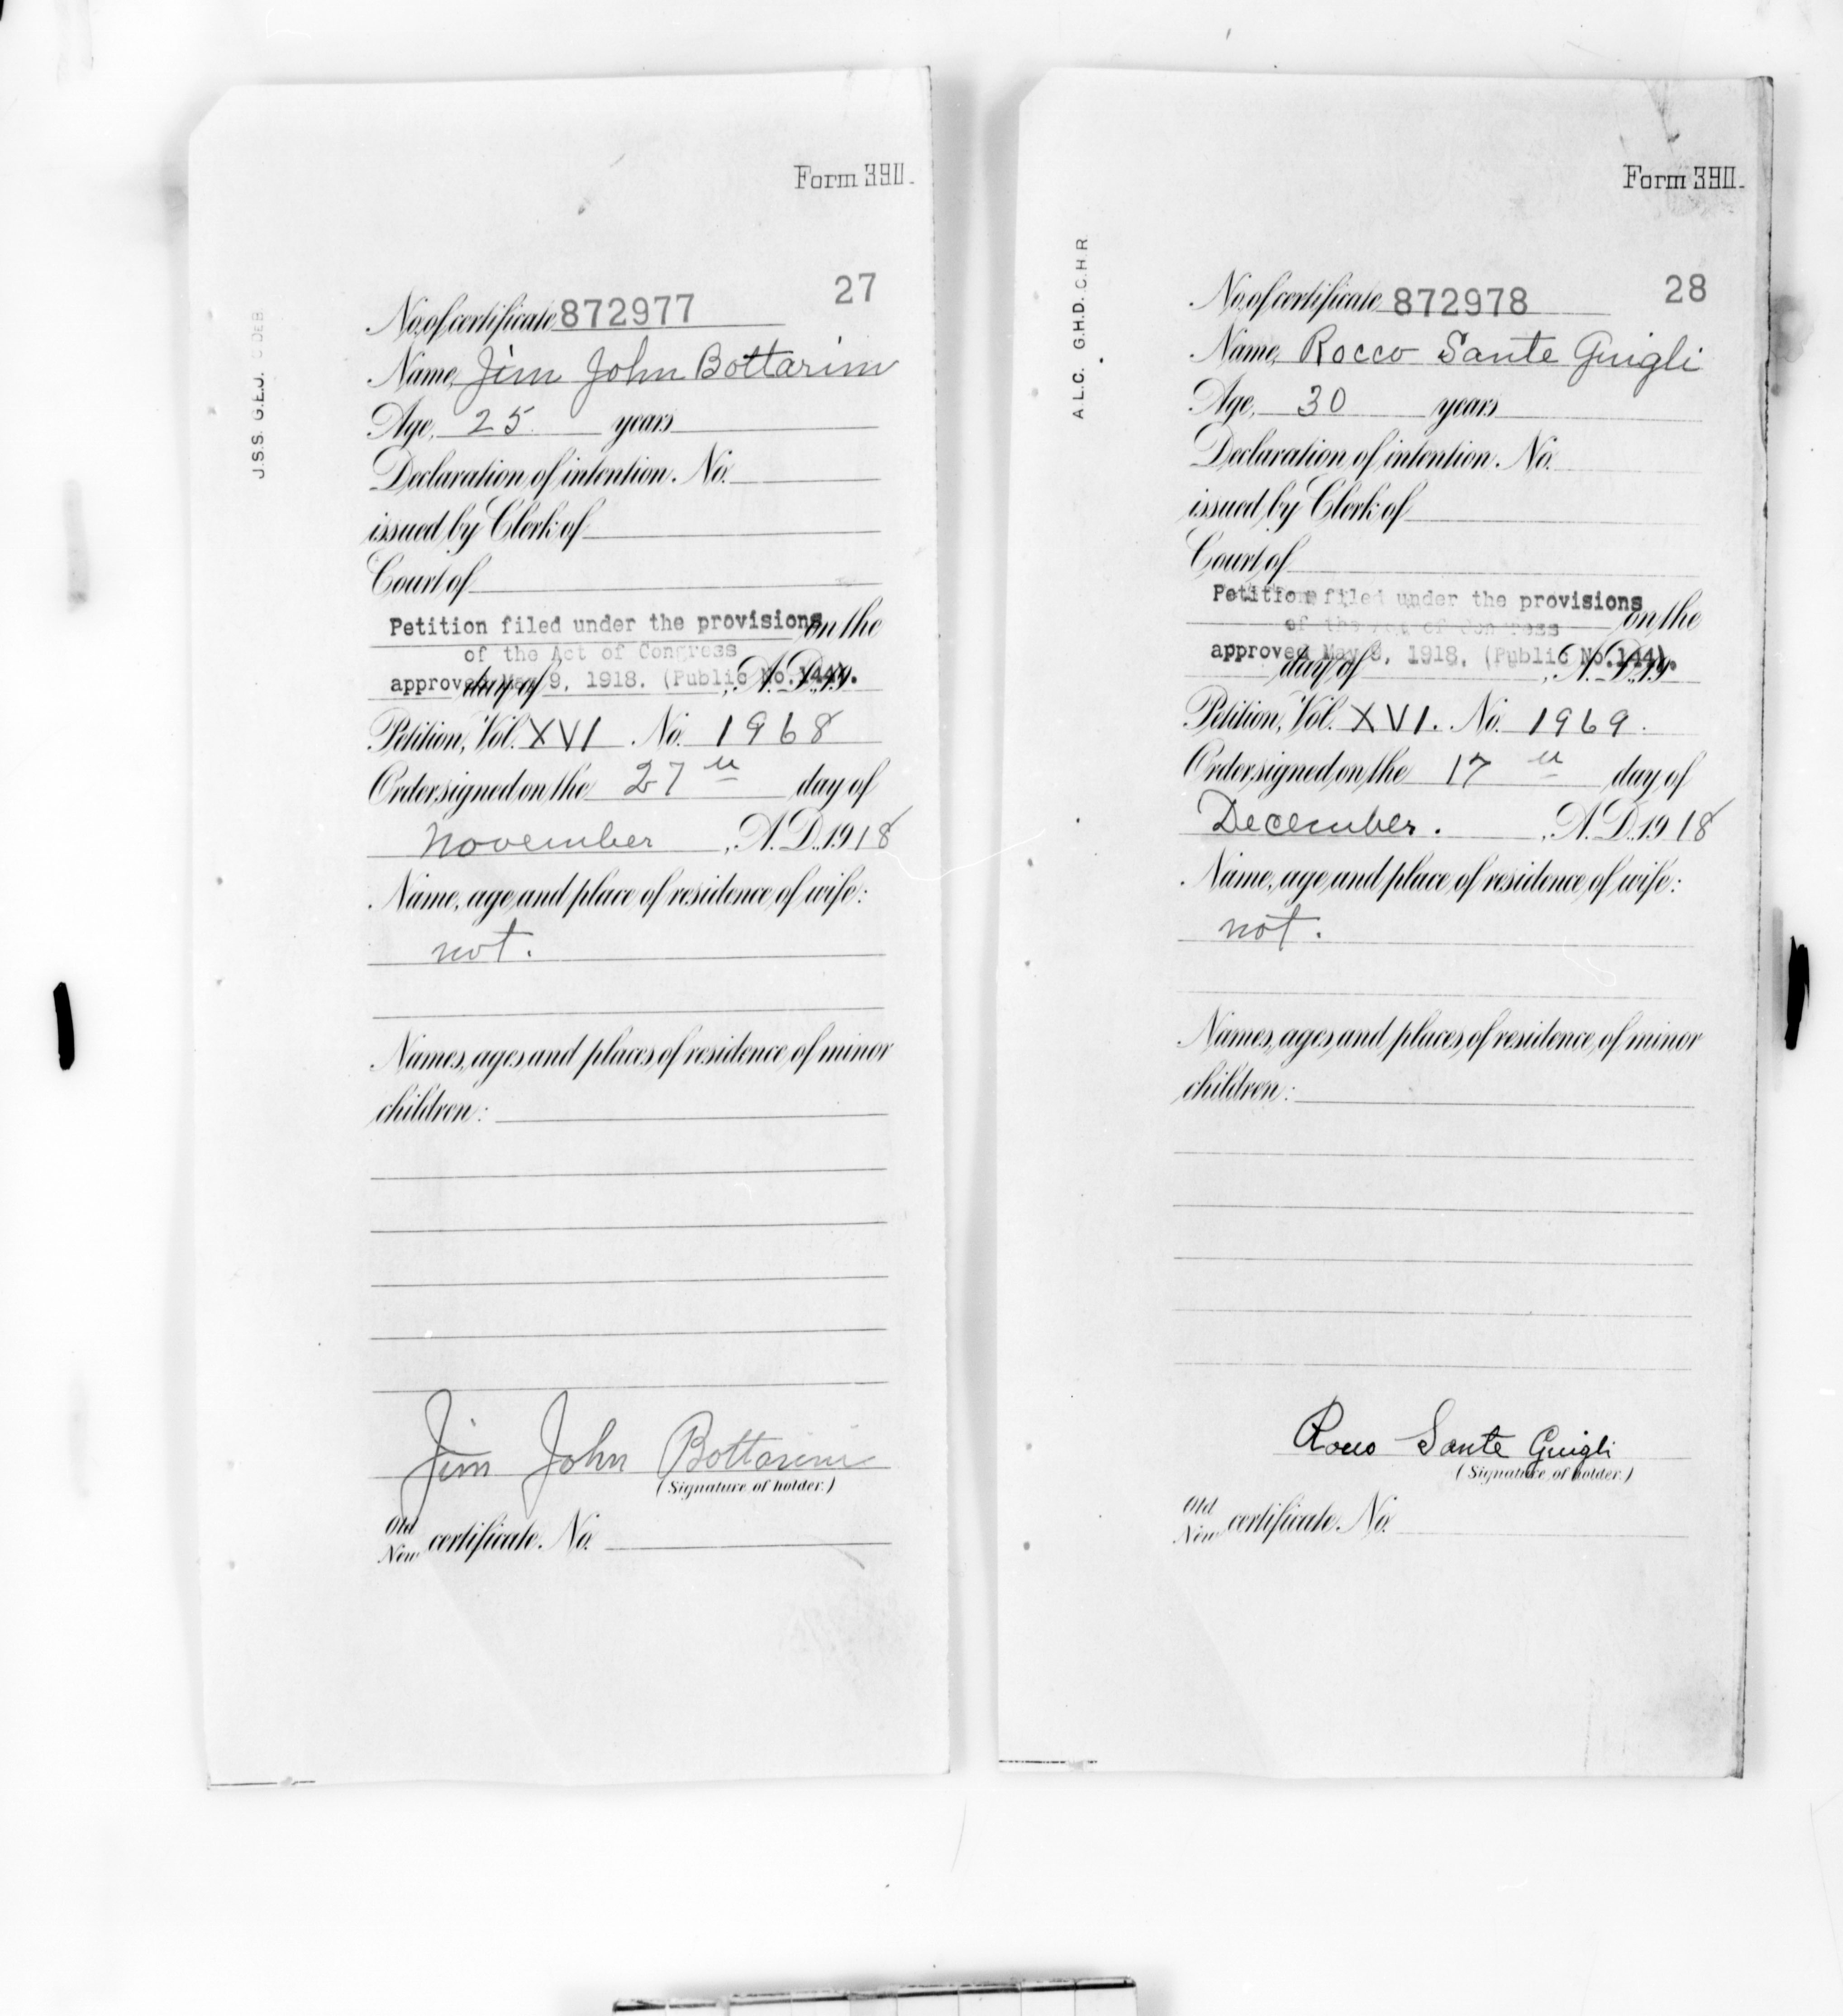 Form 390.
27
No. of certificate 872977
Name, Jim John Bottarini
Age, 25 years
Declaration of intention. No.
issued by Clerk of
Court of
Petition filed under the provisions on the
of the Act of Congress
approved May 9, 1918. (Public No. 144). day of , A.D., 19
Petition, Vol. XVI No. 1968
Order signed on the 27th day of
November , A.D., 1918
Name, age and place of residence of wife:
not.
Names, ages and places of residence of minor
children:
Jim John Bottarini
(Signature of holder.)
Old
New certificate. No.
J.S.S. G.E.J.
Form 390.
28
No. of certificate 872978
Name, Rocco Sante Guigli
Age, 30 years
Declaration of intention. No.
issued by Clerk of
Court of
Petition filed under the provisions on the
of the Act of Congress
approved May 9, 1918, (Public No. 144). day of , A.D., 19
Petition, Vol. XVI. No. 1969.
Order signed on the 17th day of
December. , A.D., 1918
Name, age and place of residence of wife:
not.
Names, ages and places of residence of minor
children:
Rocco Sante Guigli
(Signature of holder.)
Old
New certificate. No.
A.L.C. G.H.D. C.H.R.